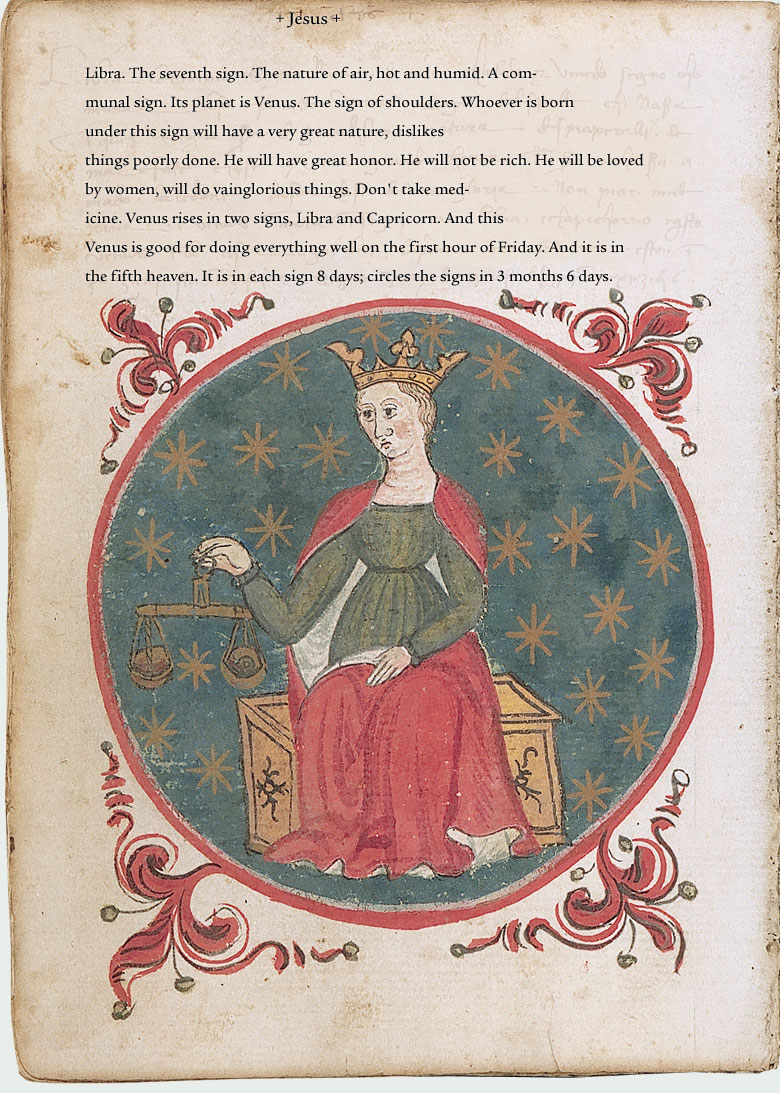 + Jesus +
Libra. The seventh sign. The nature of air, hot and humid. A com-
munal sign. Its planet is Venus. The sign of shoulders. Whoever is born
under this sign will have a very great nature, dislikes
things poorly done. He will have great honor. He will not be rich. He will be loved
by women, will do vainglorious things. Don't take med-
icine. Venus rises in two signs, Libra and Capricorn. And this
Venus is good for doing everything well on the first hour of Friday. And it is in
the fifth heaven. It is in each sign 8 days; circles the signs in 3 months 6 days.